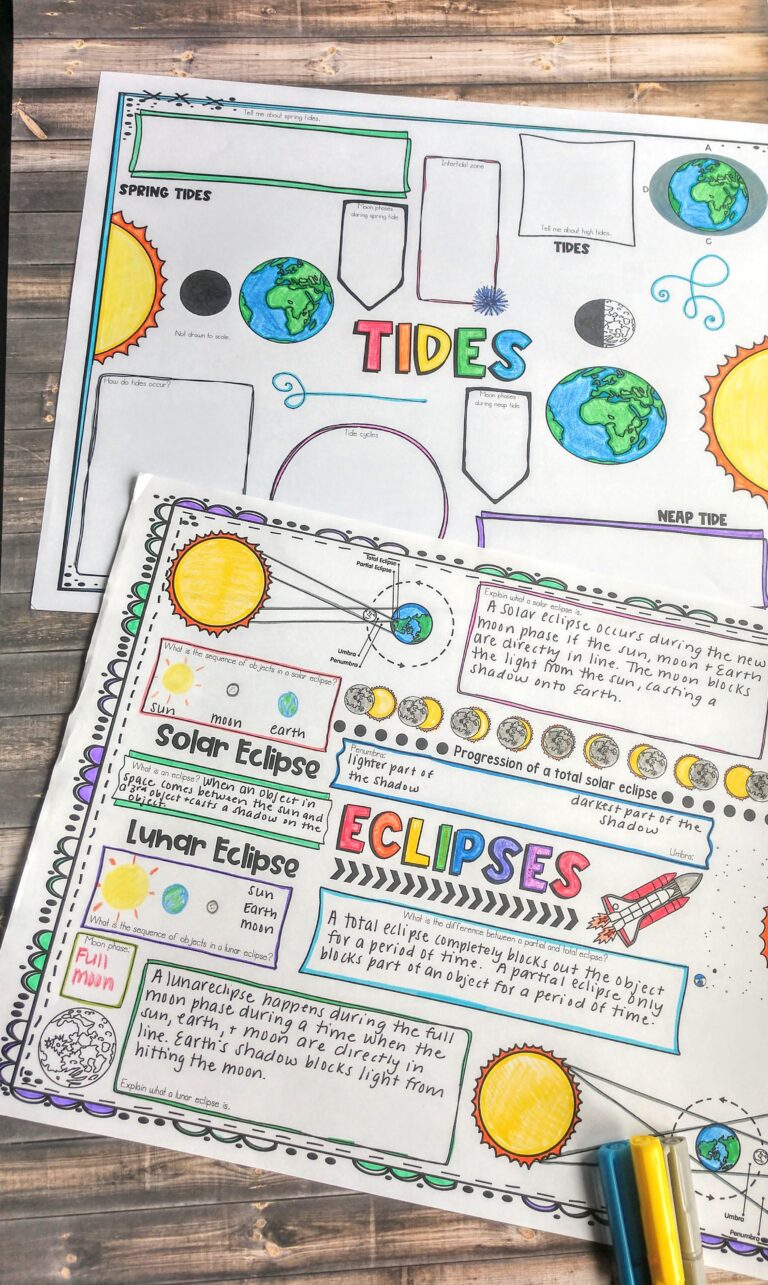 Tell me about spring tides.
SPRING TIDES
Moon phases
during spring tide
Intertidal zone
Tell me about high tides.
TIDES
A
D
C
Not drawn to scale.
TIDES
How do tides occur?
Tide cycles
Moon phases
during neap tide
NEAP TIDE
Total Eclipse
Partial Eclipse
Umbra
Penumbra
Explain what a solar eclipse is.
A solar eclipse occurs during the new
moon phase if the sun, moon + Earth
are directly in line. The moon blocks
the light from the sun, casting a
shadow onto Earth.
What is the sequence of objects in a solar eclipse?
sun
moon
earth
Solar Eclipse
Progression of a total solar eclipse
Penumbra:
lighter part of
the shadow
darkest part of the
shadow
Umbra:
What is an eclipse? when an object in
space comes between the sun and
a 3rd object + casts a shadow on the
object.
ECLIPSES
Lunar Eclipse
sun
Earth
moon
What is the sequence of objects in a lunar eclipse?
What is the difference between a partial and total eclipse?
A total eclipse completely blocks out the object
for a period of time. A partial eclipse only
blocks part of an object for a period of time.
Moon phase:
Full
moon
A lunareclipse happens during the full
moon phase during a time when the
sun, earth, + moon are directly in
line. Earth's shadow blocks light from
hitting the moon.
Explain what a lunar eclipse is.
Umbra
Penumbra